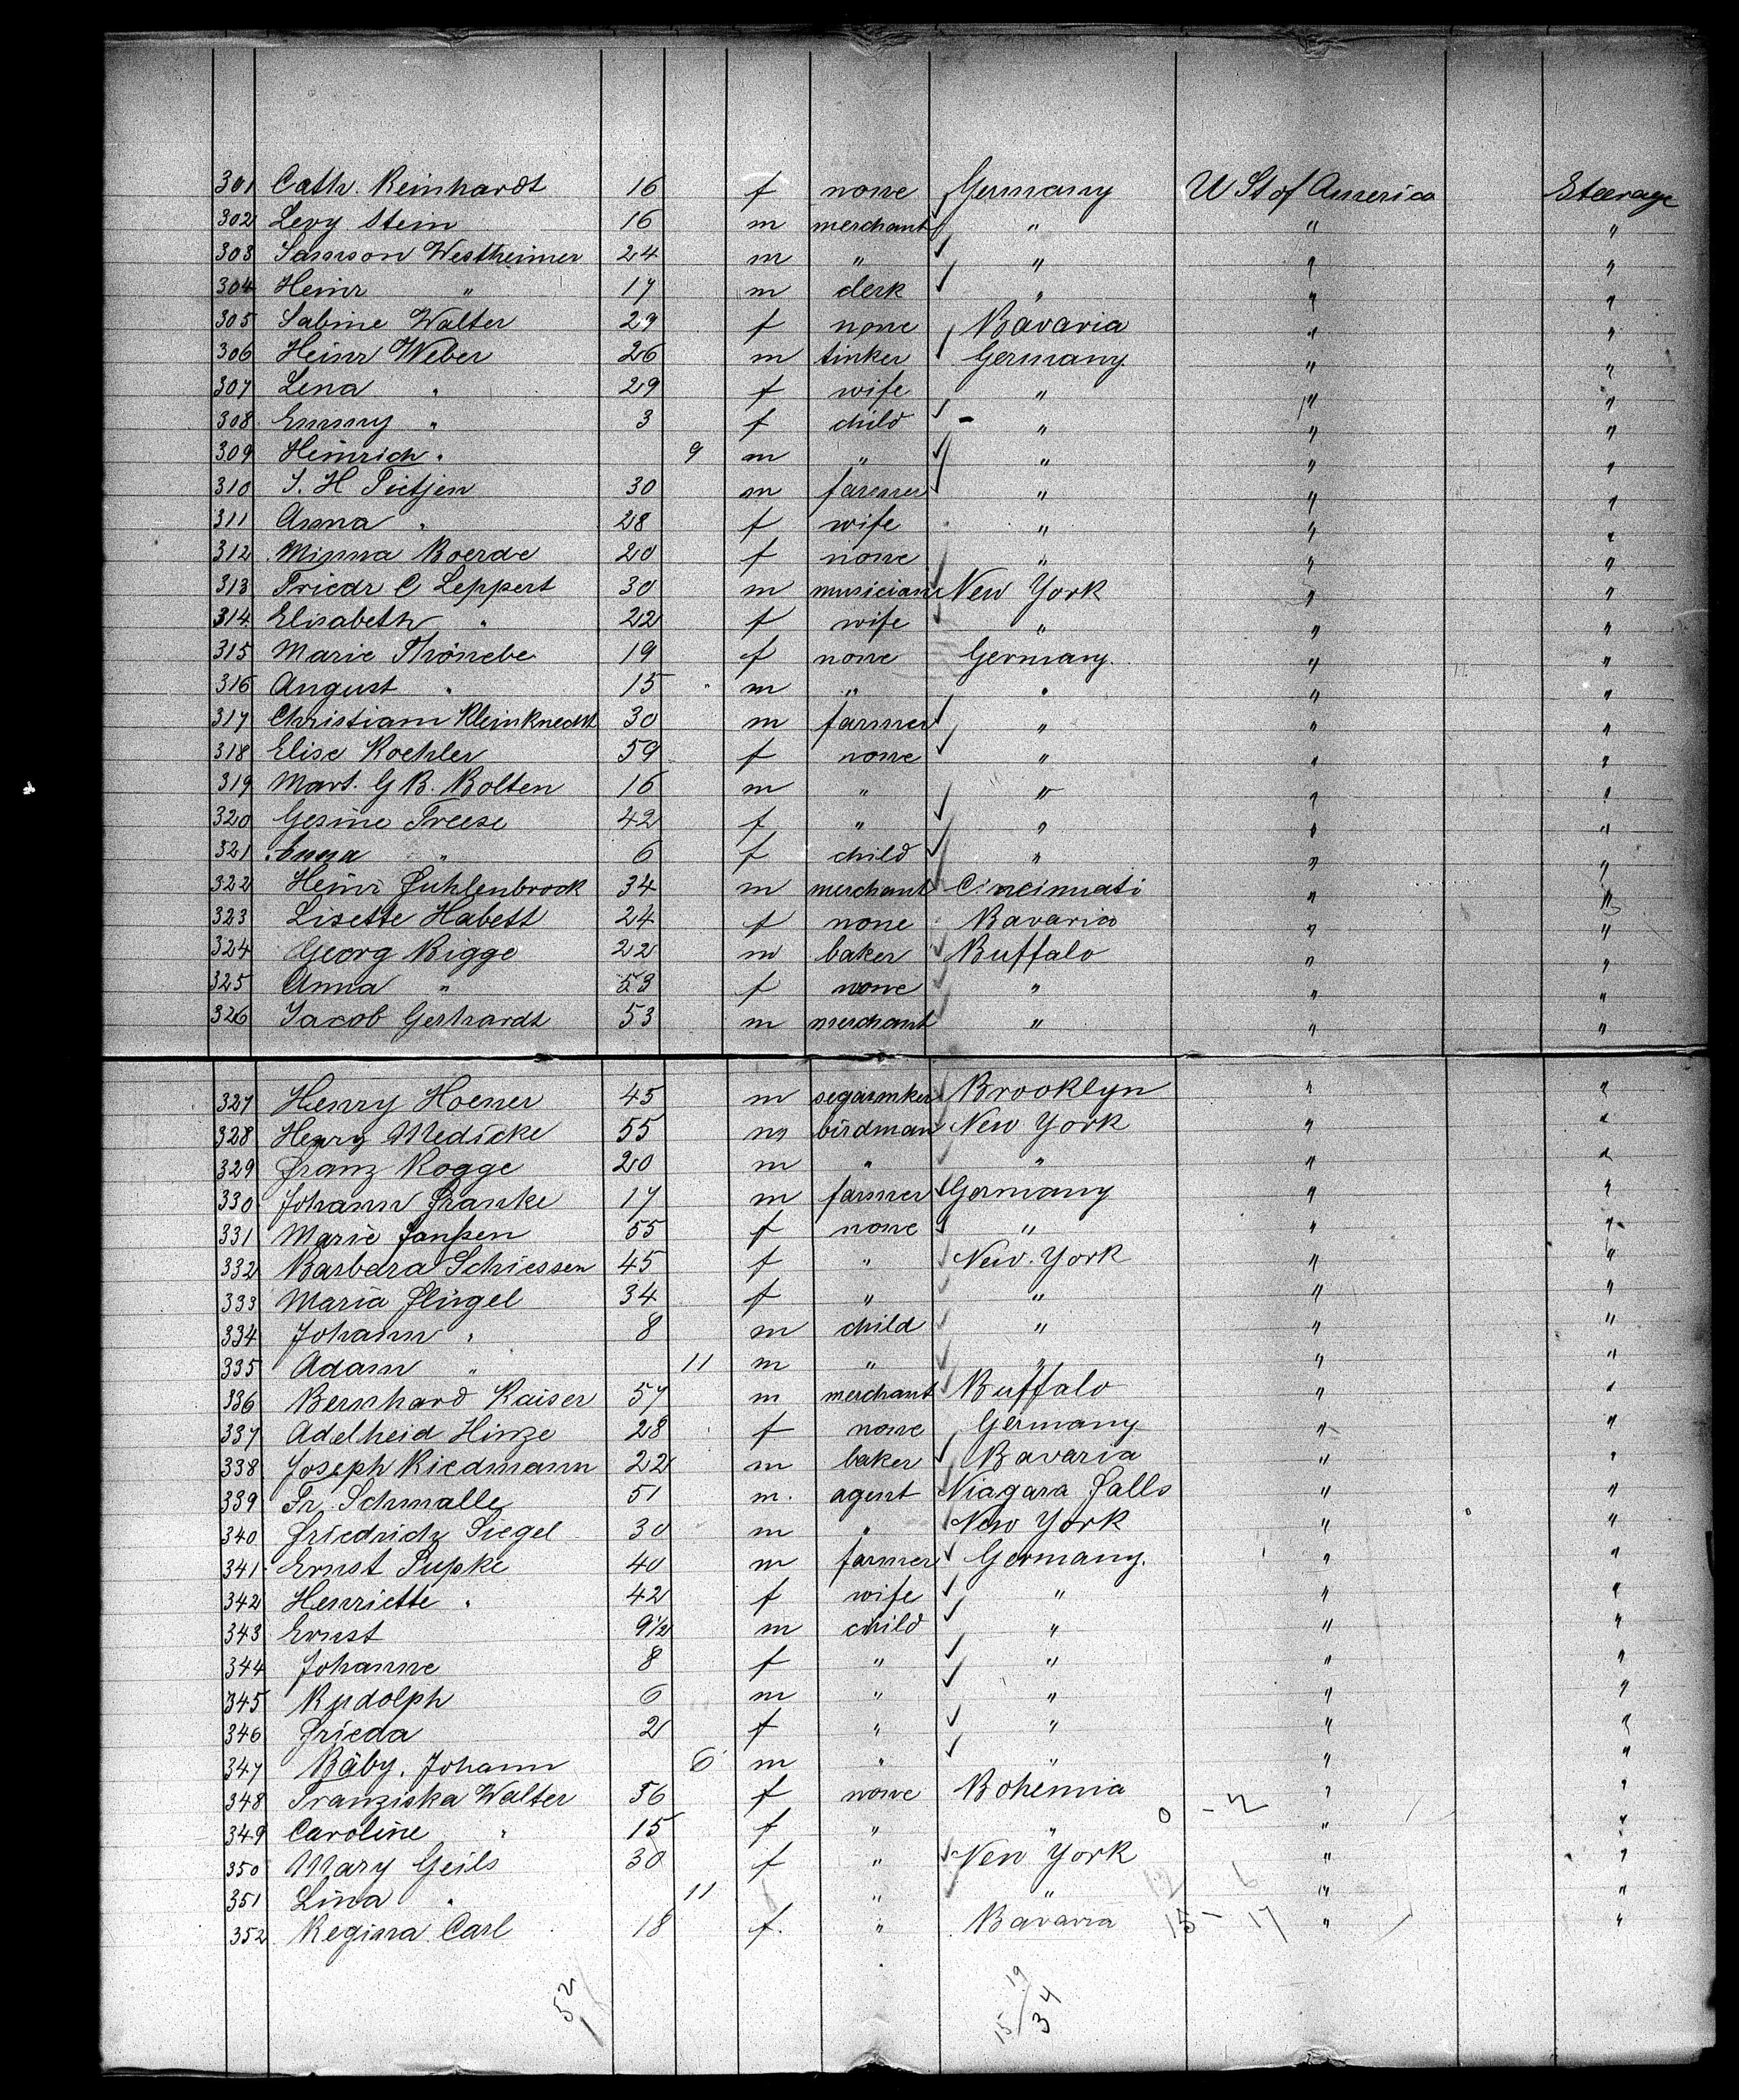 301 Cath. Reinhardt 16 f none Germany U St of America Steerage
302 Levy Stein 16 m merchant " " "
303 Samson Westheimer 24 m " " " "
304 Heinr " 17 m clerk " " "
305 Sabine Walter 29 f none Bavaria " "
306 Heinr Weber 26 m tinker Germany. " "
307 Lena " 29 f wife " " "
308 Emmy " 3 f child " " "
309 Heinrich " 9 m " " " "
310 J. H Tietjen 30 m farmer " " "
311 Anna " 28 f wife " " "
312 Minna Boerde 20 f none " " "
313 Friedr C Leppert 30 m musician New York " "
314 Elisabeth " 22 f wife " " "
315 Marie Thönebe 19 f none Germany. " "
316 August " 15 m " " " "
317 Christiam Kleinknecht 30 m farmer " " "
318 Elise Koehler 59 f none " " "
319 Mart. G B. Bolten 16 m " " " "
320 Gesine Treese 42 f " " " "
321 Anna " 6 f child " " "
322 Heinr Fuhlenbrock 34 m merchant Cincinnati " "
323 Lisette Habett 24 f none Bavaria " "
324 Georg Bigge 22 m baker Buffalo " "
325 Anna " 53 f none " " "
326 Jacob Gerhardt 53 m merchant " " "
327 Henry Hoener 45 m segarmker Brooklyn " "
328 Henry Medicke 55 m birdman New York " "
329 Franz Rogge 20 m " " " "
330 Johann Franke 17 m farmer Germany " "
331 Marie Janßen 55 f none " " "
332 Barbara Schiessen 45 f " New York " "
333 Maria Flügel 34 f " " " "
334 Johann " 8 m child " " "
335 Adam " 11 m " " " "
336 Bernhard Kaiser 57 m merchant Buffalo " "
337 Adelheid Hinze 28 f none Germany " "
338 Joseph Riedmann 22 m baker Bavaria " "
339 Fr. Schmalle 51 m. agent Niagara Falls " "
340 Friedrich Siegel 30 m " New York " "
341 Ernst Pupke 40 m farmer Germany. " "
342 Henriette " 42 f wife " " "
343 Ernst 9 1/2 m child " " "
344 Johanne 8 f " " " "
345 Rudolph 6 m " " " "
346 Frieda 2 f " " " "
347 Bäby. Johann 6 m " " " "
348 Franziska Walter 56 f none Bohemia " "
349 Caroline " 15 f " " " "
350 Mary Geils 30 f " New York " "
351 Lina " 11 " " " "
352 Regina Carl 18 f. " Bavaria 15 - 17 " "
52
19
15/34